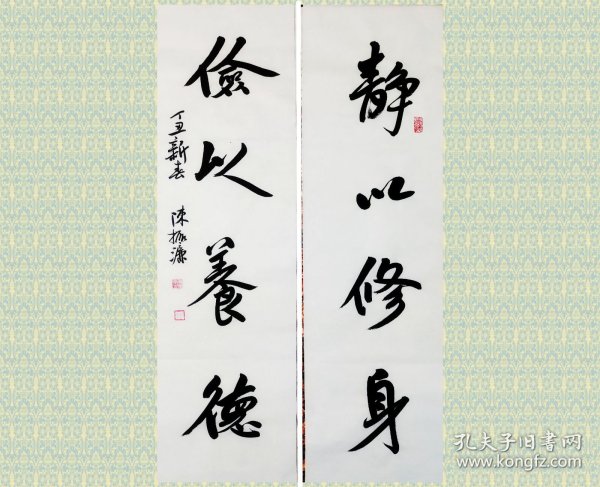 静以修身
儉以養德
丁丑新春 陳振濂
孔夫子旧书网
www.kongfz.com